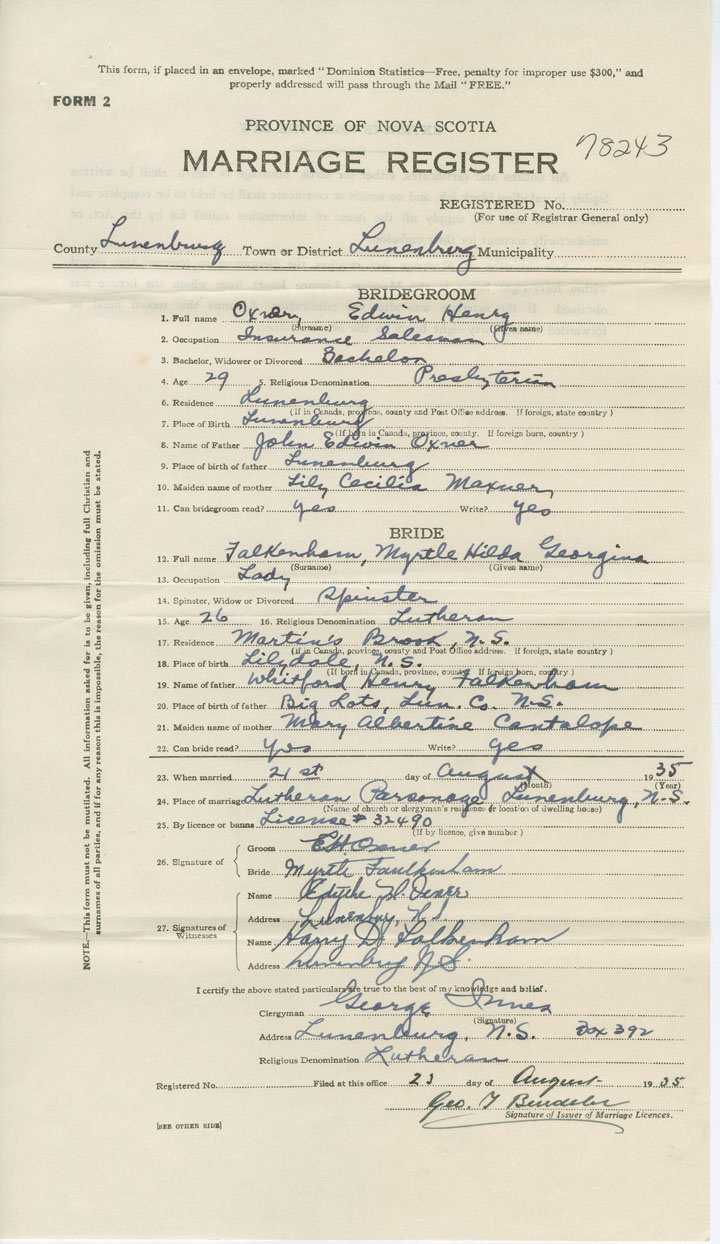 This form, if placed in an envelope, marked "Dominion Statistics—Free, penalty for improper use $300," and
properly addressed will pass through the Mail "FREE."
FORM 2
PROVINCE OF NOVA SCOTIA
MARRIAGE REGISTER
78243
REGISTERED No.
(For use of Registrar General only)
County Lunenburg Town or District Lunenberg Municipality
BRIDEGROOM
1. Full name Oxner, Edwin Henry
(Surname) (Given name)
2. Occupation Insurance Salesman
3. Bachelor, Widower or Divorced Bachelor
4. Age 29 5. Religious Denomination Presbyterian
6. Residence Lunenburg
(If in Canada, province, county and Post Office address. If foreign, state country)
7. Place of Birth Lunenburg
(If born in Canada, province, county. If foreign born, country)
8. Name of Father John Edwin Oxner
9. Place of birth of father Lunenburg
10. Maiden name of mother Lily Cecilia Maxner
11. Can bridegroom read? yes Write? yes
BRIDE
12. Full name Falkenham, Myrtle Hilda Georgina
(Surname) (Given name)
13. Occupation Lady
14. Spinster, Widow or Divorced Spinster
15. Age 26 16. Religious Denomination Lutheran
17. Residence Martin's Brook, N.S.
(If in Canada, province, county and Post Office address. If foreign, state country)
18. Place of birth Lilydale, N.S.
(If born in Canada, province, county. If foreign born, country)
19. Name of father Whitford Henry Falkenham
20. Place of birth of father Big Lots, Lun. Co. N.S.
21. Maiden name of mother Mary Albertine Cantalope
22. Can bride read? Yes Write? yes
23. When married 21st day of August 1935
(Month) (Year)
24. Place of marriage Lutheran Parsonage Lunenburg, N.S.
(Name of church or clergyman's residence or location of dwelling house)
25. By licence or banns License # 32490
(If by licence, give number)
26. Signature of
Groom E H Oxner
Bride Myrtle Faulkenham
27. Signatures of Witnesses
Name Edythe Oxner
Address Lunenburg, N.S.
Name Harry D. Falkenham
Address Lunenburg N.S.
I certify the above stated particulars are true to the best of my knowledge and belief.
Clergyman George Innes
(Signature)
Address Lunenburg, N.S. Box 392
Religious Denomination Lutheran
Registered No. Filed at this office 23 day of August 1935
Geo. T
Signature of Issuer of Marriage Licences.
[SEE OTHER SIDE]
NOTE.—This form must not be mutilated. All information asked for is to be given, including full Christian and
surnames of all parties, and if for any reason this is impossible, the reason for the omission must be stated.